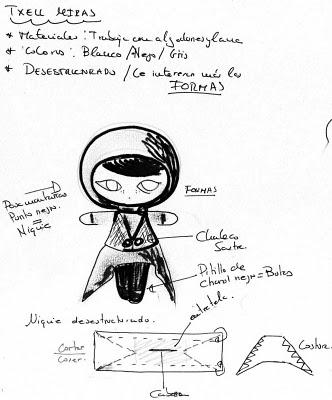 TXELL MIRAS
* Materiales: Trabaja con algodones y lana
* Colores: Blanco/Negro/Gris
* DESESTRUCTURADO / Le interesan más las
FORMAS
FORMAS
Para
Punto negro.
=
Niquie
Chaleco
Sastre.
Pitillo de
Charol negro = Botas
entretela.
Niquie desestructurado.
Cortar
Coser.
Costura.
Cabeza